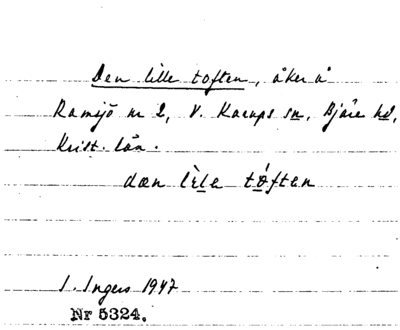 Den lille toften, åker å
Ramsjö nr 2, V. Karups sn, Bjäre hd,
Krist. län.
dæn lèle tóften
I. Ingers 1947
Nr 5324.